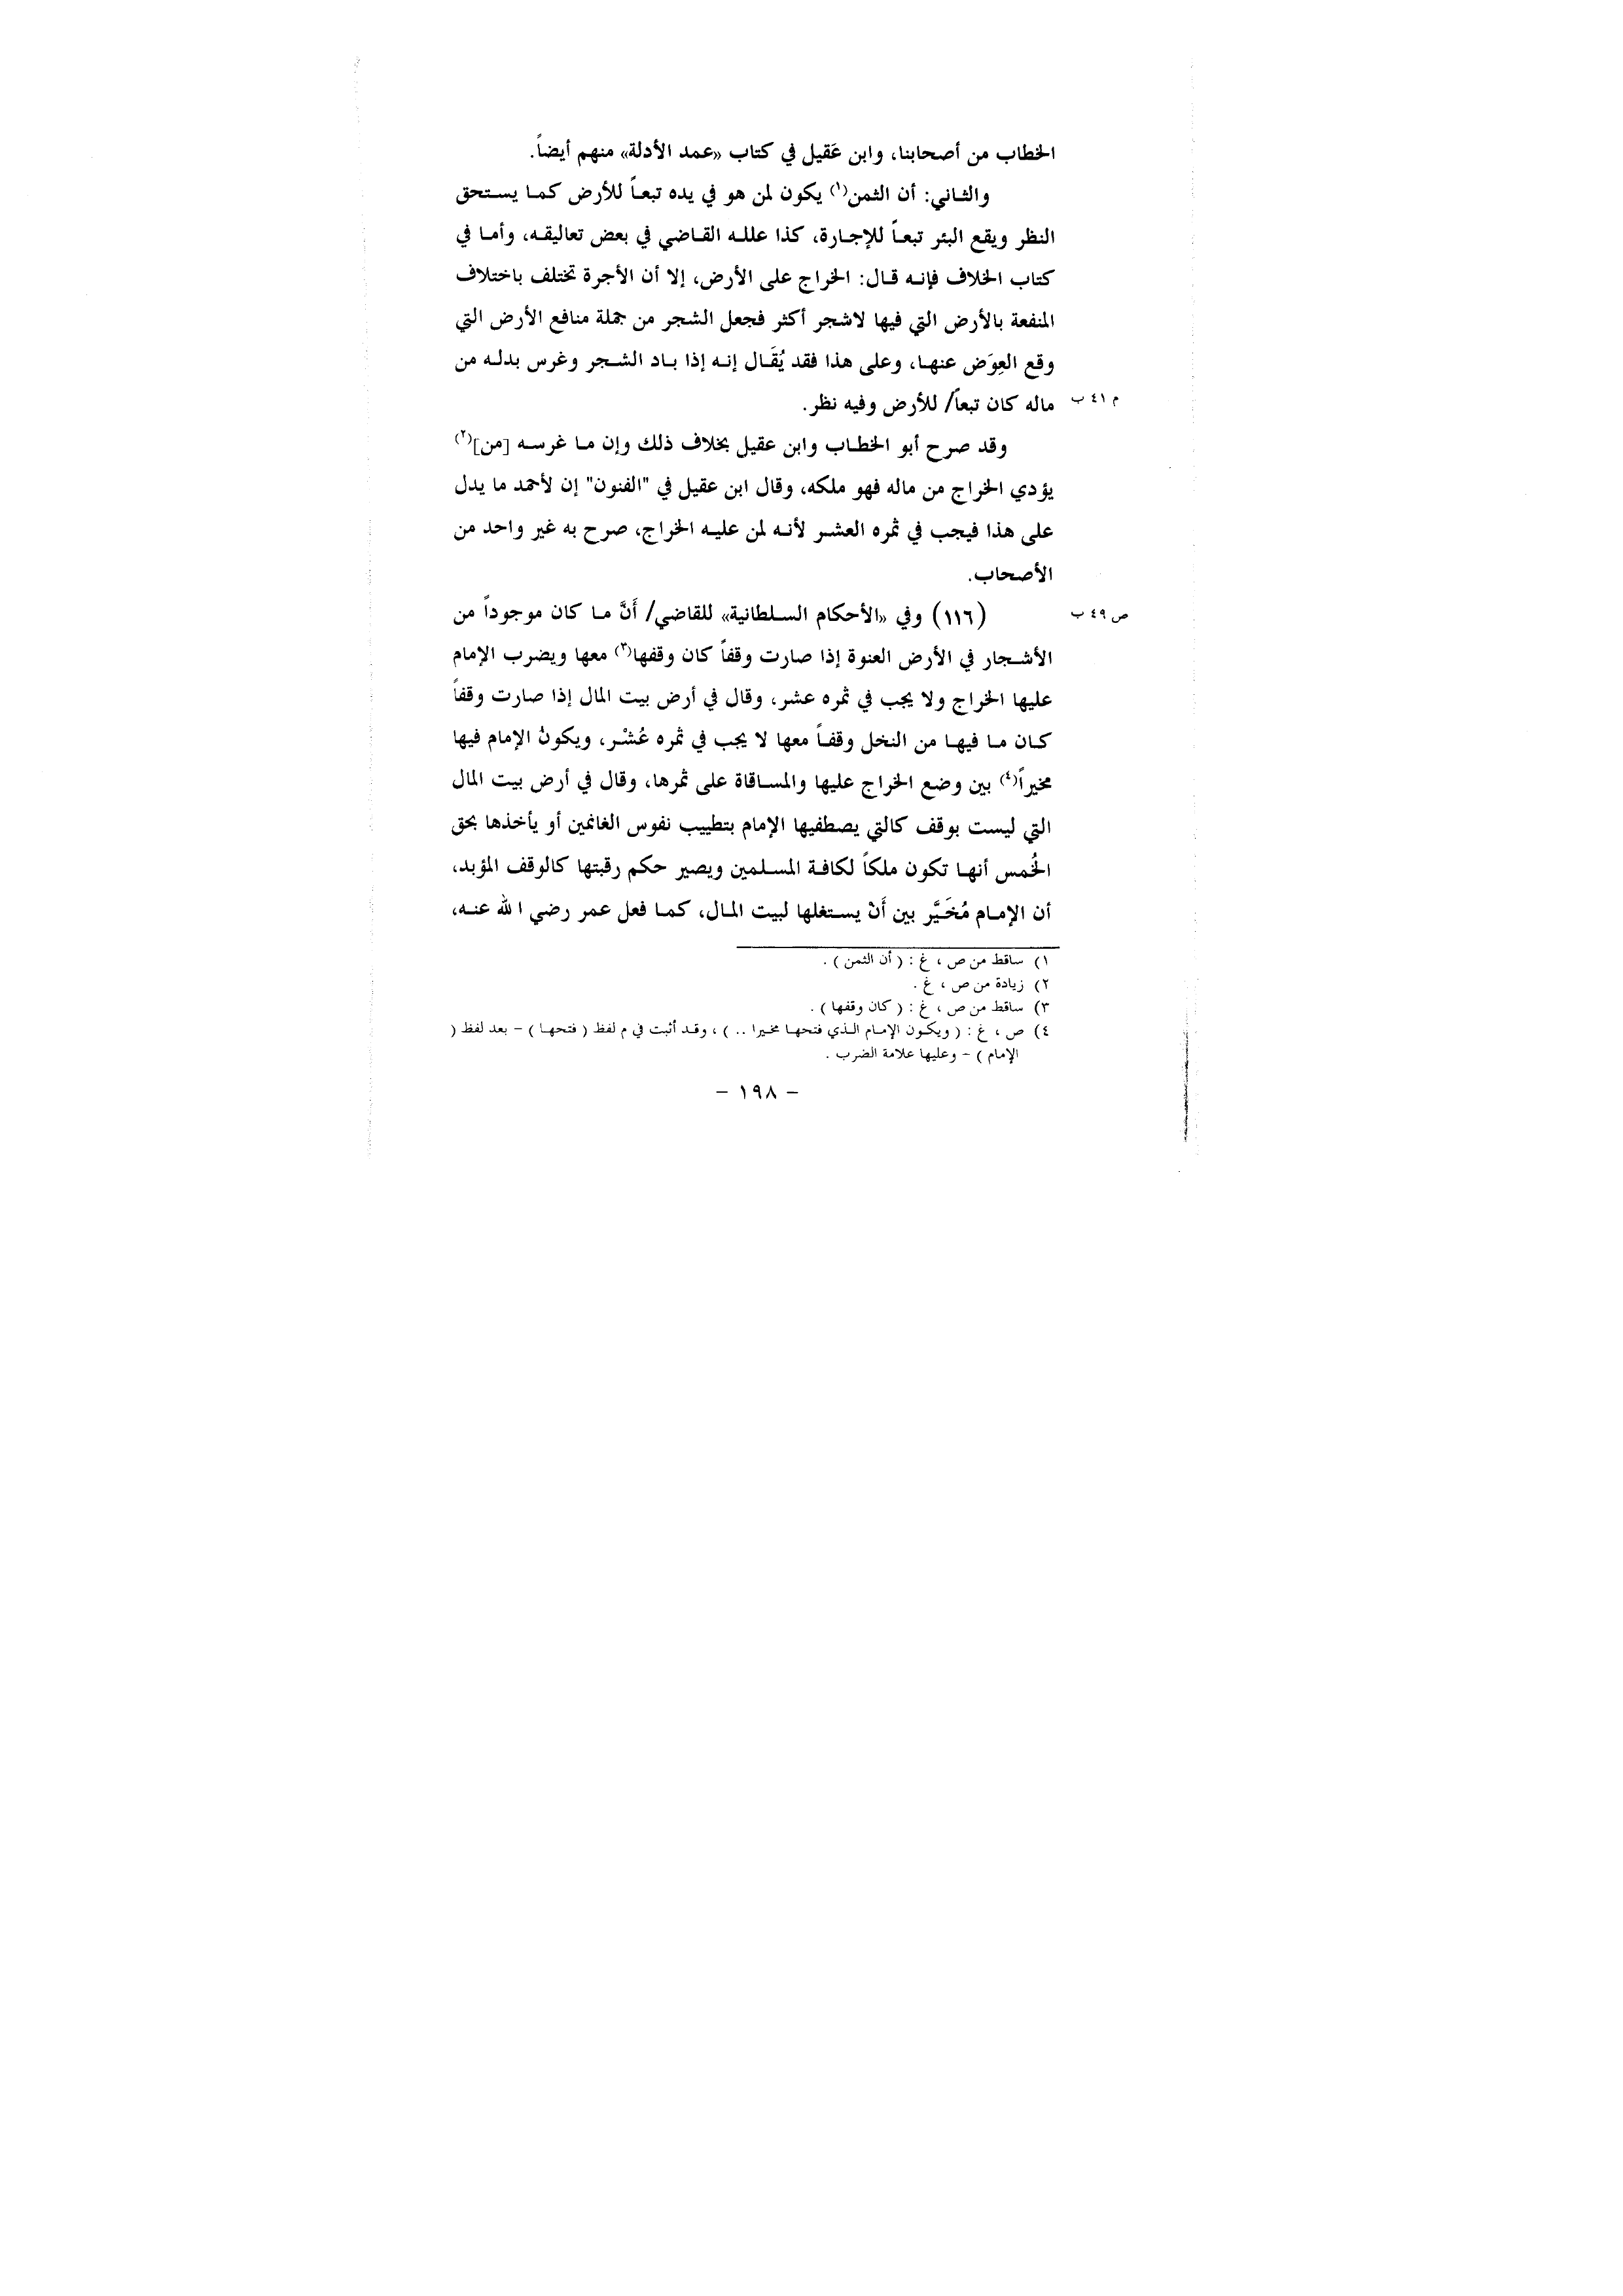 الخطاب من أصحابنا، وابن عَقيل في كتاب «عمد الأدلة» منهم أيضاً.
والثاني: أن الثمن(١) يكون لمن هو في يده تبعاً للأرض كما يستحق
النظر ويقع البئر تبعاً للإجارة، كذا علله القاضي في بعض تعاليقه، وأما في
كتاب الخلاف فإنه قال: الخراج على الأرض، إلا أن الأجرة تختلف باختلاف
المنفعة بالأرض التي فيها لاشجر أكثر فجعل الشجر من جملة منافع الأرض التي
وقع العِوَض عنها، وعلى هذا فقد يُقَال إنه إذا باد الشجر وغرس بدله من
ماله كان تبعاً/ للأرض وفيه نظر.
م ٤١ ب
وقد صرح أبو الخطاب وابن عقيل بخلاف ذلك وإن ما غرسه [من](٢)
يؤدي الخراج من ماله فهو ملكه، وقال ابن عقيل في "الفنون" إن لأحمد ما يدل
على هذا فيجب في ثمره العشر لأنه لمن عليه الخراج، صرح به غير واحد من
الأصحاب.
(١١٦) وفي «الأحكام السلطانية» للقاضي/ أَنَّ ما كان موجوداً من
ص ٤٩ ب
الأشجار في الأرض العنوة إذا صارت وقفاً كان وقفها(٣) معها ويضرب الإمام
عليها الخراج ولا يجب في ثمره عشر، وقال في أرض بيت المال إذا صارت وقفاً
كان ما فيها من النخل وقفاً معها لا يجب في ثمره عُشْر، ويكونُ الإمام فيها
مخيراً(٤) بين وضع الخراج عليها والمساقاة على ثمرها، وقال في أرض بيت المال
التي ليست بوقف كالتي يصطفيها الإمام بتطييب نفوس الغانمين أو يأخذها بحق
الخُمس أنها تكون ملكاً لكافة المسلمين ويصير حكم رقبتها كالوقف المؤبد،
أن الإمام مُخَيَّر بين أَنْ يستغلها لبيت المال، كما فعل عمر رضي الله عنه،
١) ساقط من ص ، غ : ( أن الثمن ) .
٢) زيادة من ص ، غ .
٣) ساقط من ص ، غ : ( كان وقفها ) .
٤) ص ، غ : ( ويكون الإمام الذي فتحها مخيرا .. ) ، وقد أثبت في م لفظ ( فتحها ) – بعد لفظ (
الإمام ) – وعليها علامة الضرب .
– ١٩٨ –